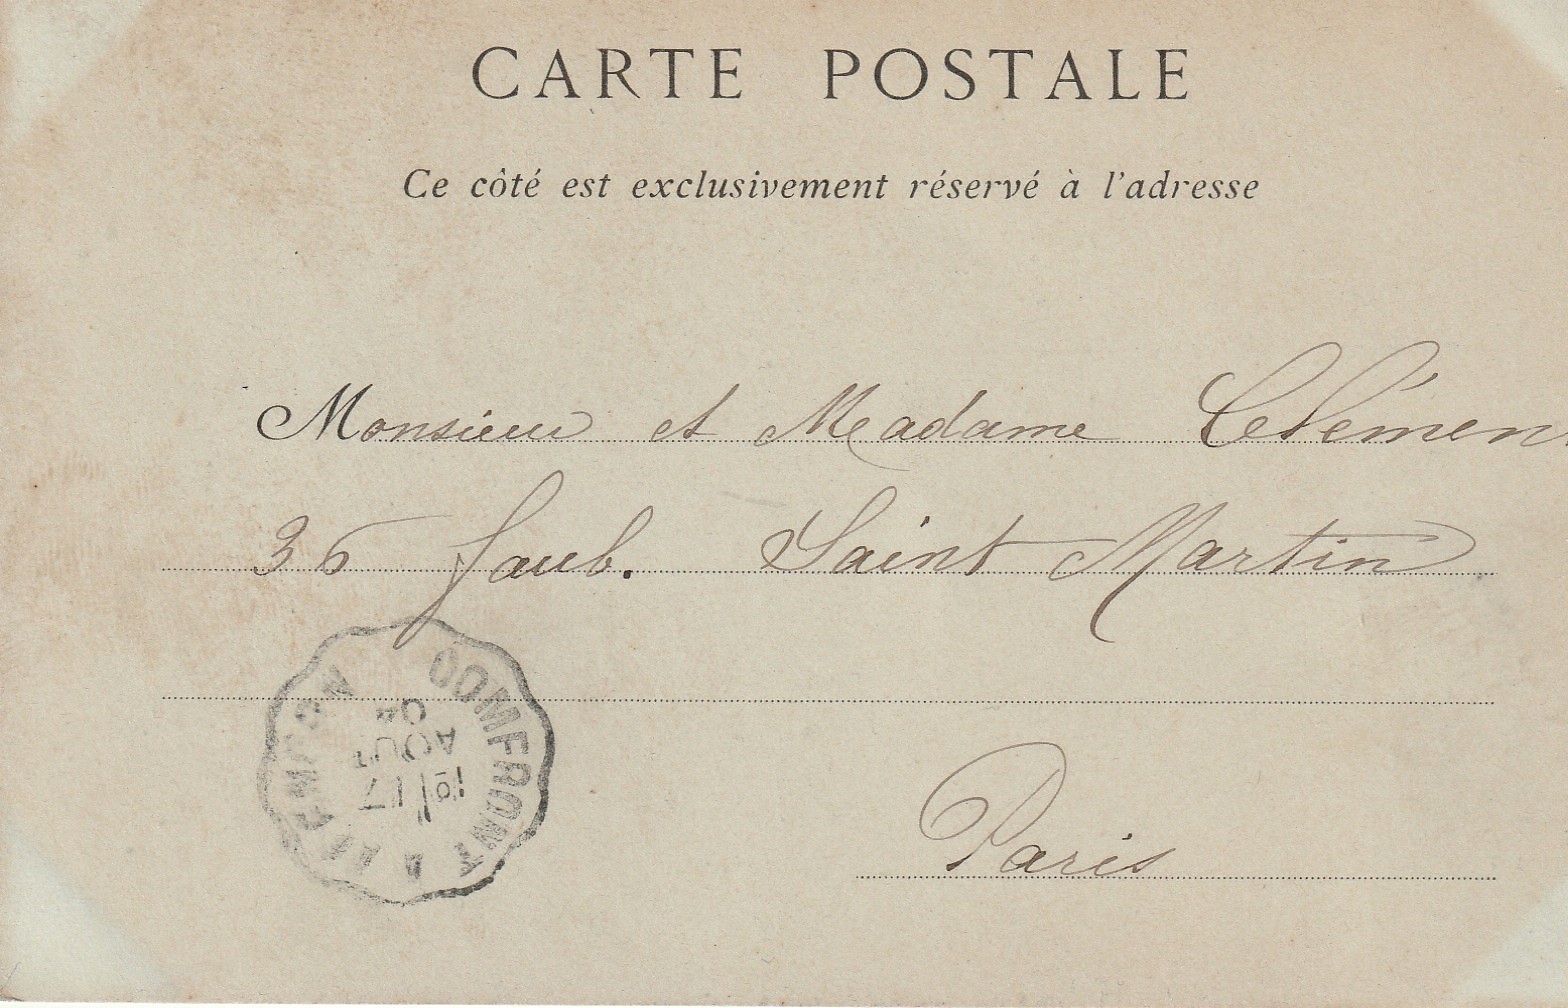 CARTE POSTALE
Ce côté est exclusivement réservé à l'adresse
Monsieur et Madame Clémen
36 faub. Saint Martin
Paris
DOMFRONT A
17
AOUT
04